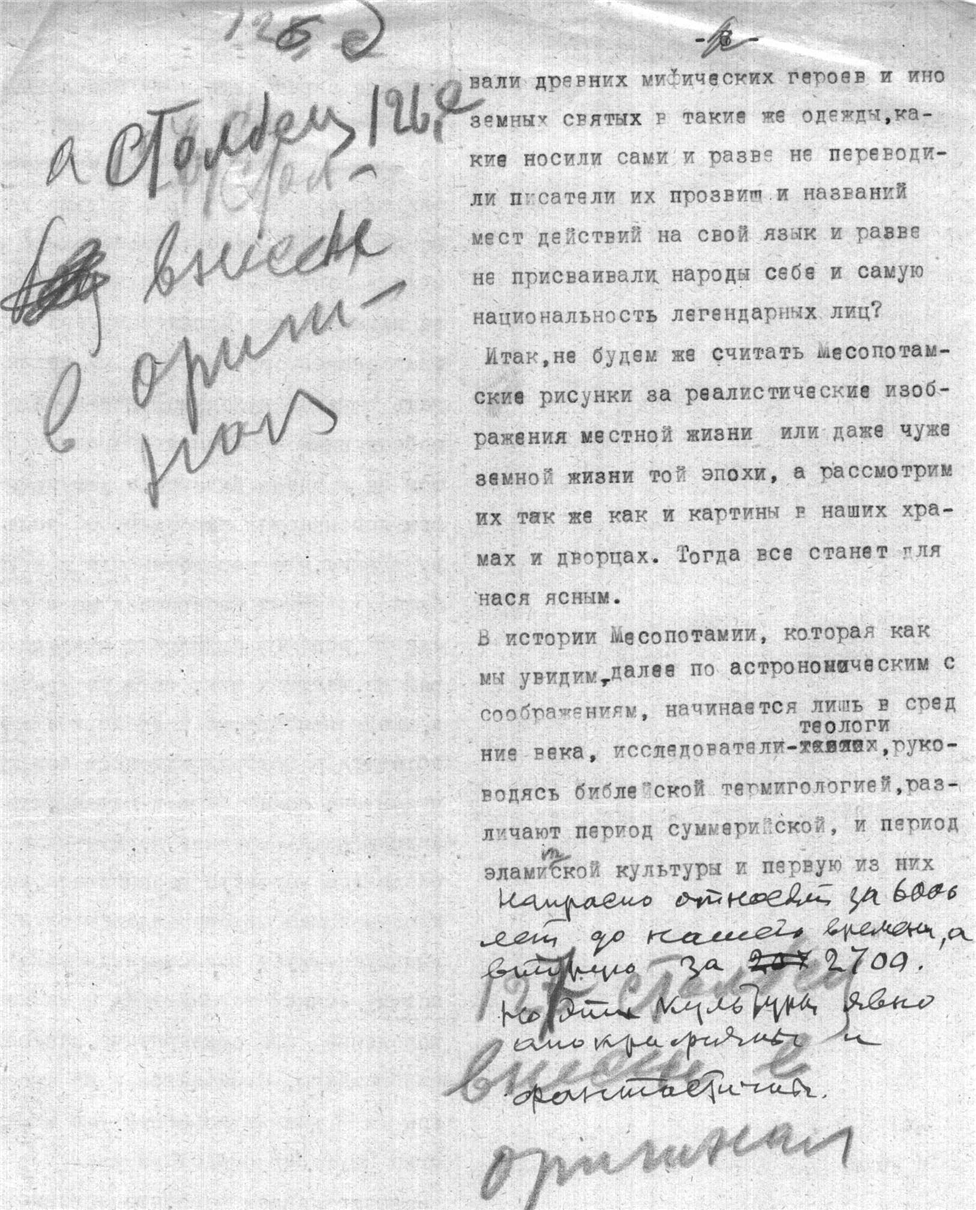 а столбец 126,е
внесен
в ориги-
нал
вали древних мифических героев и ино
земных святых в такие же одежды,ка-
кие носили сами и разве не переводи-
ли писатели их прозвищ и названий
мест действий на свой язык и разве
не присваивали народы себе и самую
национальность легендарных лиц?
Итак,не будем же считать Месопотам-
ские рисунки за реалистические изоб-
ражения местной жизни или даже чуже
земной жизни той эпохи, а рассмотрим
их так же как и картины в наших хра-
мах и дворцах. Тогда все станет для
нася ясным.
В истории Месопотамии, которая как
мы увидим,далее по астрономическим с
соображениям, начинается лишь в сред
теологи
ние века, исследователи- ,руко-
водясь библейской термигологией,раз-
личают период суммерийской, и период
т
эламиской культуры и первую из них
Напрасно относят за 6000
лет до нашего времени, а
вторую за 2700.
127 столбец
Но эти культуры явно
апокрифичны и
внесен в
фантастичны.
оригинал